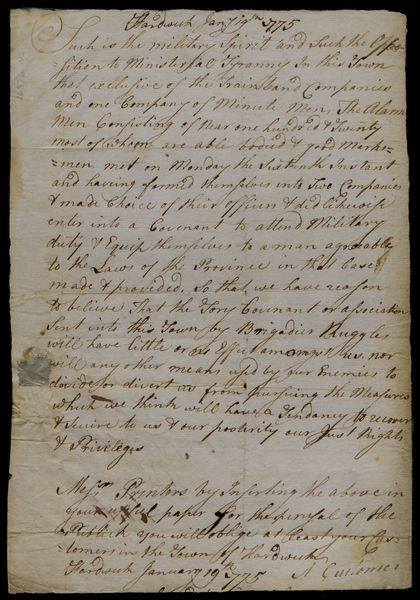 Hardwick Jany 19th 1775
Such is the military Spirit and Such the Oppo
=sition to Ministerial Tyranny In this Town
that exclusive of the Trainband Companies
and one Company of Minute Men, The Alarm
Men Consisting of Near one hundred & Twenty
most of whom are able bodied & good Marks=
=men met on Monday the Sixtenth Instant
and having formed themselves into Two Companies
& made Choice of their officers & did likewise
enter into a Covenant to attend Military
duty & Equip themselves to a man agreeable
to the Laws of the Province in that Case
made & provided. So that, we have reason
to believe That the Tory Covenant or association
Sent into this Town by Brigadier Ruggles
will have little or no Effect amongst us, nor
will any other means used by our Enemies to
divide or divert us from pursuing the Measures
which we think will have a Tendancy to recover
& secure to us & our posterity our Just Rights
& Privileges
Messrs Printers by Inserting the above in
your usefull paper for the perusal of the
Publick you will oblige at least your Cus=
=tomers in the Town of Hardwick
Hardwick January 19th 1775
A Customer